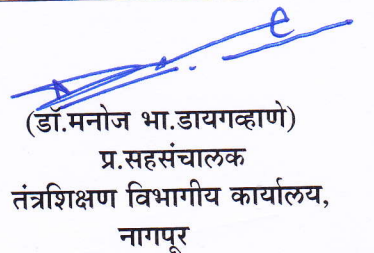 (डॉ.मनोज भा.डायगव्हाणे)
प्र.सहसंचालक
तंत्रशिक्षण विभागीय कार्यालय,
नागपूर